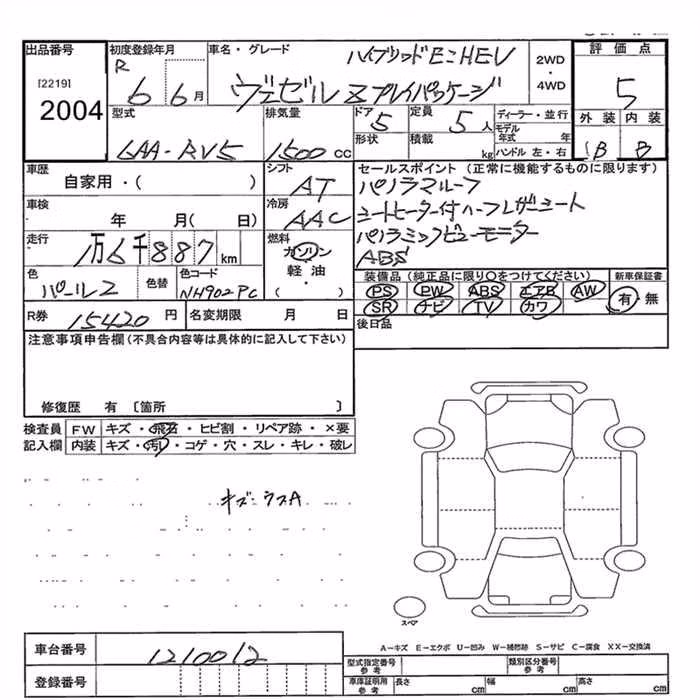 出品番号
[2219]
2004
初度登録年月
R 6 6月
車名・グレード
ハイブリッドE:HEV
ヴェゼル Zプレイパッケージ
2WD
・
4WD
評価点
5
外装 内装
B B
型式
6AA-RV5
排気量
1500 cc
ドア 5
定員 5人
形状
積載 kg
ディーラー・並行
モデル年式 年
ハンドル 左・右
車歴
自家用・( )
シフト
AT
車検
年 月( 日)
冷房
AAC
走行
万6千887km
燃料
ガソリン
軽油
・
( )
色
パール2
色替
色コード
NH902PC
R券 15420 円
名変期限 月 日
セールスポイント (正常に機能するものに限ります)
パノラマルーフ
シートヒーター付ハーフレザーシート
パノラミックビューモニター
ABS
装備品 (純正品に限り○をつけてください)
新車保証書
PS PW ABS エアB AW
SR ナビ TV カワ
有・無
後日品
注意事項申告欄(不具合内容等は具体的に記入して下さい)
修復歴 有 〔箇所 〕
検査員
記入欄
FW キズ・飛石・ヒビ割・リペア跡・×要
内装 キズ・汚れ・コゲ・穴・スレ・キレ・破レ
キズ・ウスA
スペア
A-キズ E-エクボ U-凹み W-補修跡 S-サビ C-腐食 XX-交換済
車台番号 1210012
登録番号
型式指定番号 参考
類別区分番号 参考
車庫証明用 参考
長さ cm
幅 cm
高さ cm